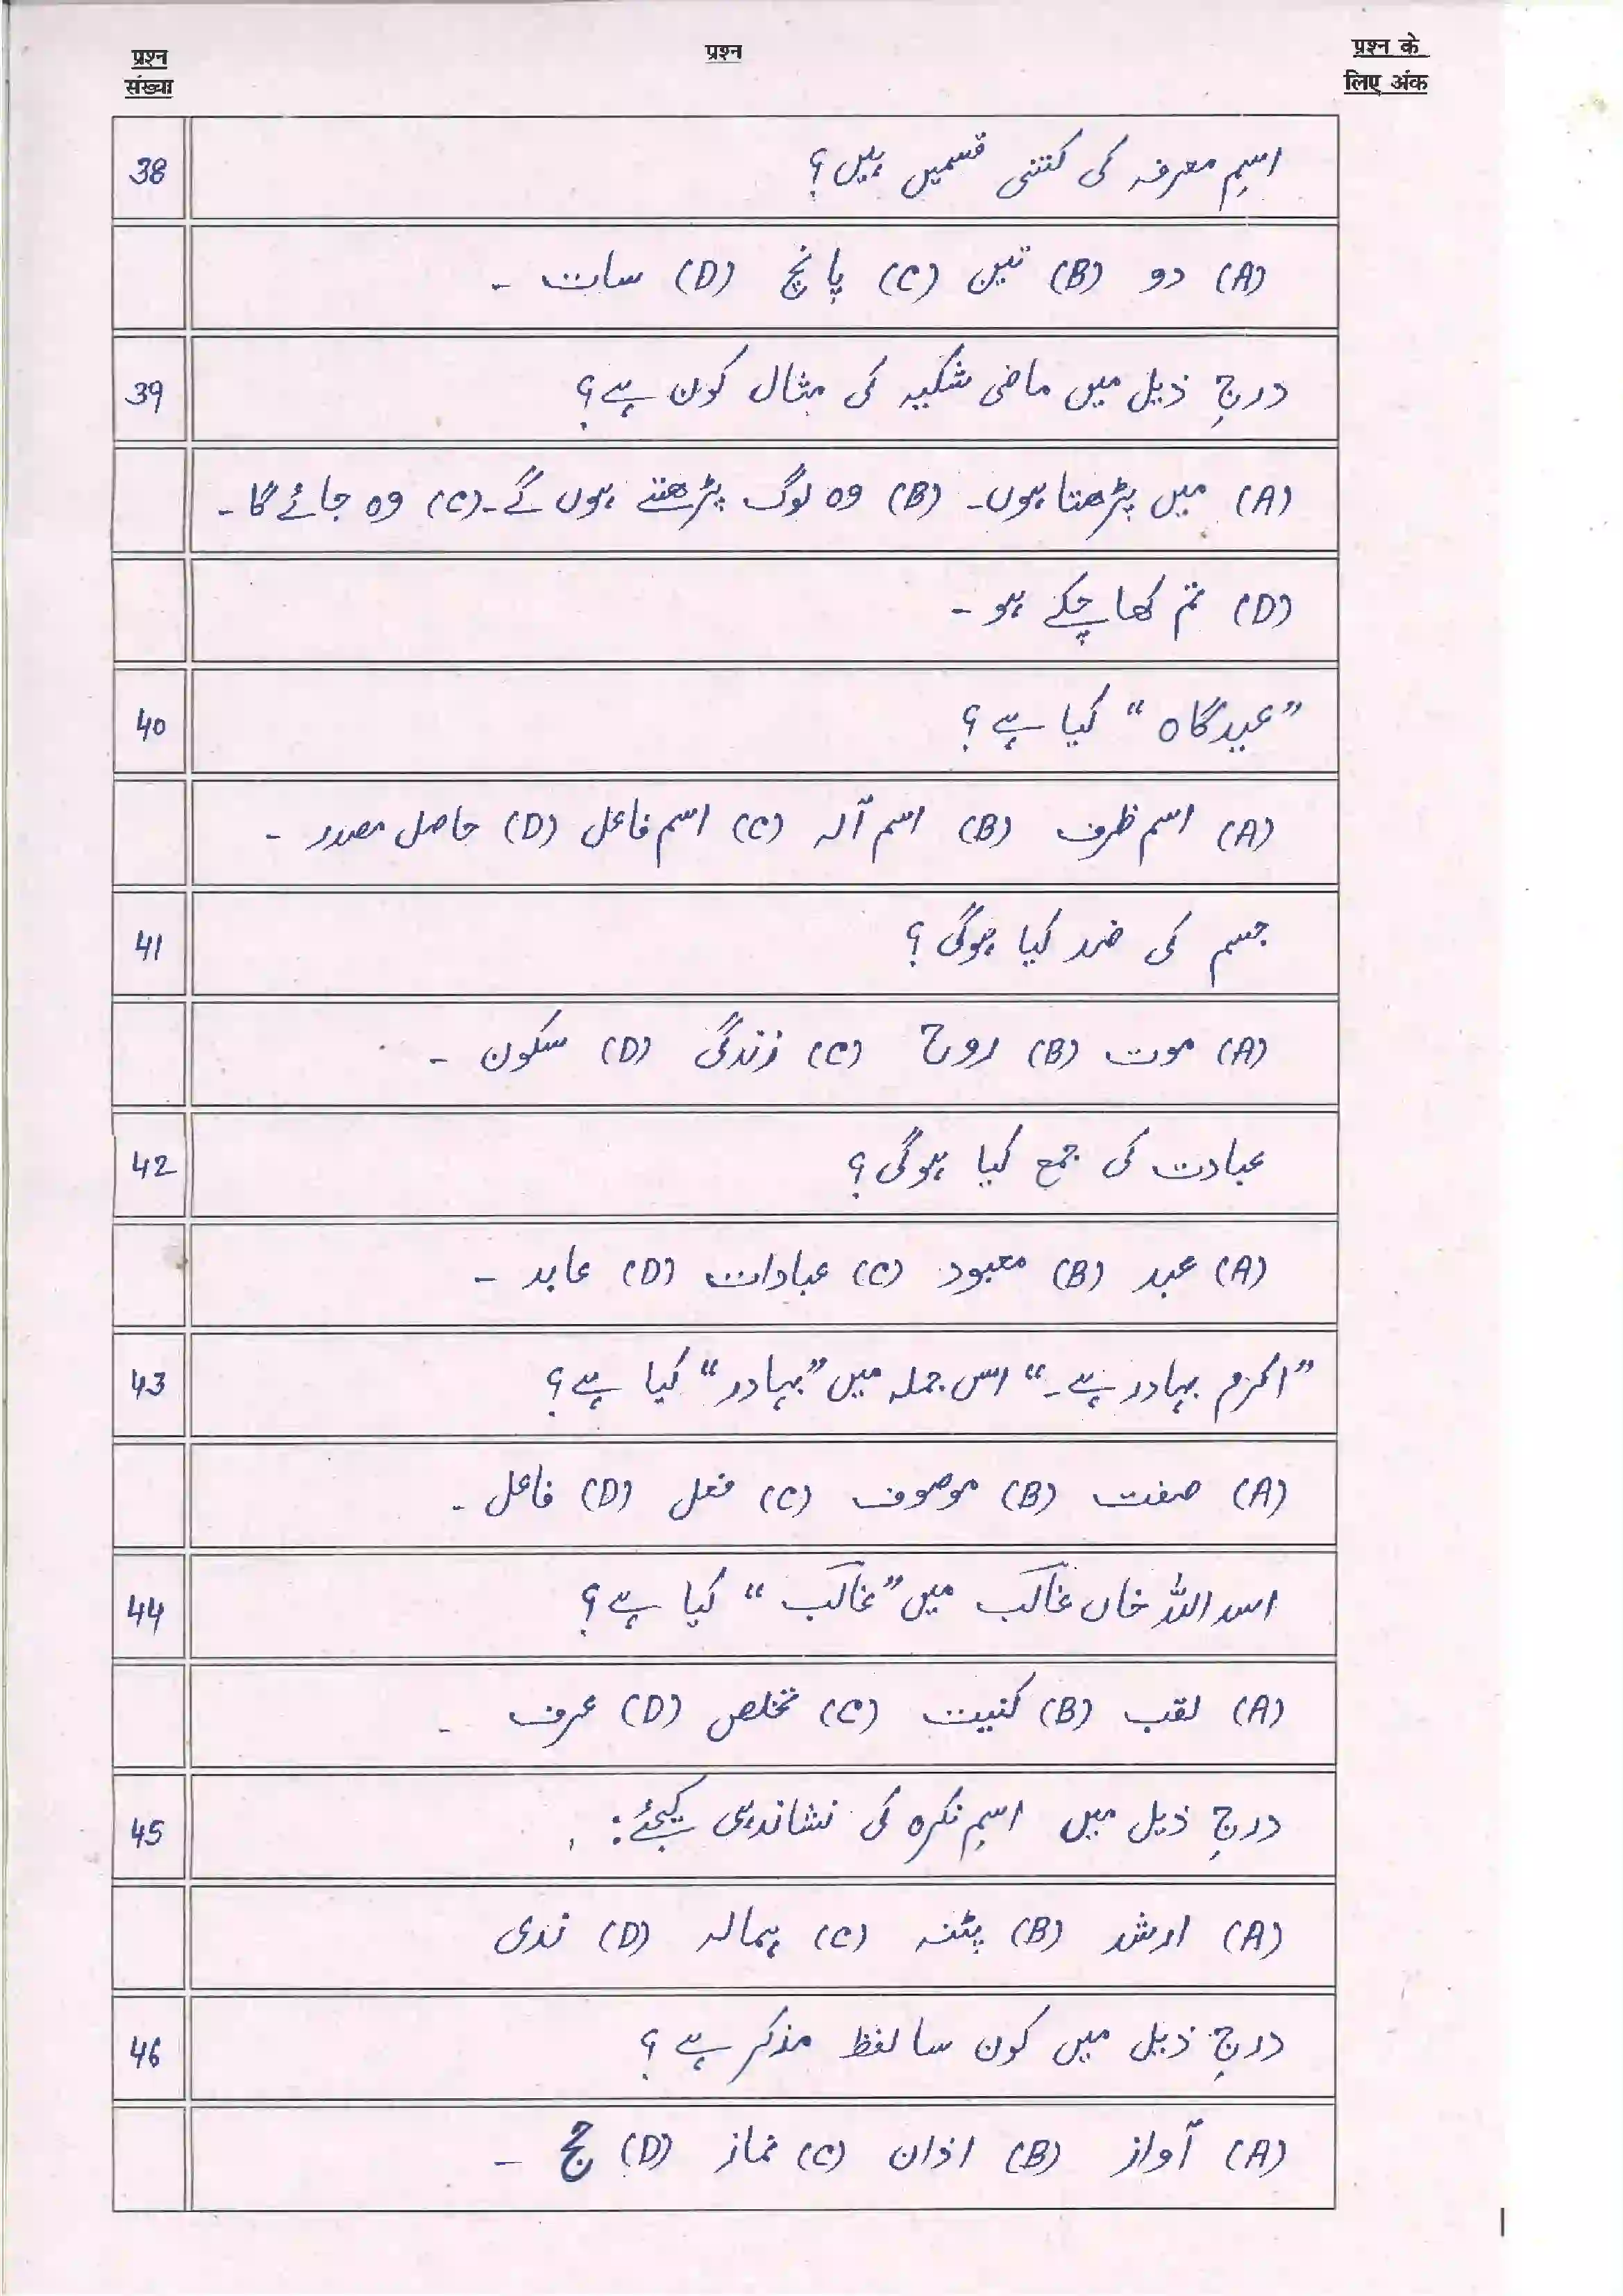 प्रश्न संख्या
प्रश्न
प्रश्न के लिए अंक
38
اسمِ معرفہ کی کتنی قسمیں ہیں؟
(A) دو (B) تین (C) پانچ (D) سات ۔
39
درجِ ذیل میں ماضی شکیہ کی مثال کون ہے؟
(A) میں پڑھتا ہوں۔ (B) وہ لوگ پڑھتے ہوں گے۔ (C) وہ جائے گا۔
(D) تم کھا چکے ہو ۔
40
”عیدگاہ“ کیا ہے؟
(A) اسم ظرف (B) اسم آلہ (C) اسم فاعل (D) حاصل مصدر ۔
41
جسم کی ضد کیا ہوگی؟
(A) موت (B) روح (C) زندگی (D) سکون ۔
42
عبادت کی جمع کیا ہوگی؟
(A) عبد (B) معبود (C) عبادات (D) عابد ۔
43
”اکرم بہادر ہے۔“ اس جملہ میں ”بہادر“ کیا ہے؟
(A) صفت (B) موصوف (C) فعل (D) فاعل ۔
44
اسد اللہ خاں غالب میں ”غالب“ کیا ہے؟
(A) لقب (B) کنیت (C) تخلص (D) عرف ۔
45
درجِ ذیل میں اسمِ نکرہ کی نشاندہی کیجئے:
(A) ارشد (B) پٹنہ (C) ہمالہ (D) ندی
46
درجِ ذیل میں کون سا لفظ مذکر ہے؟
(A) آواز (B) اذان (C) نماز (D) حج ۔